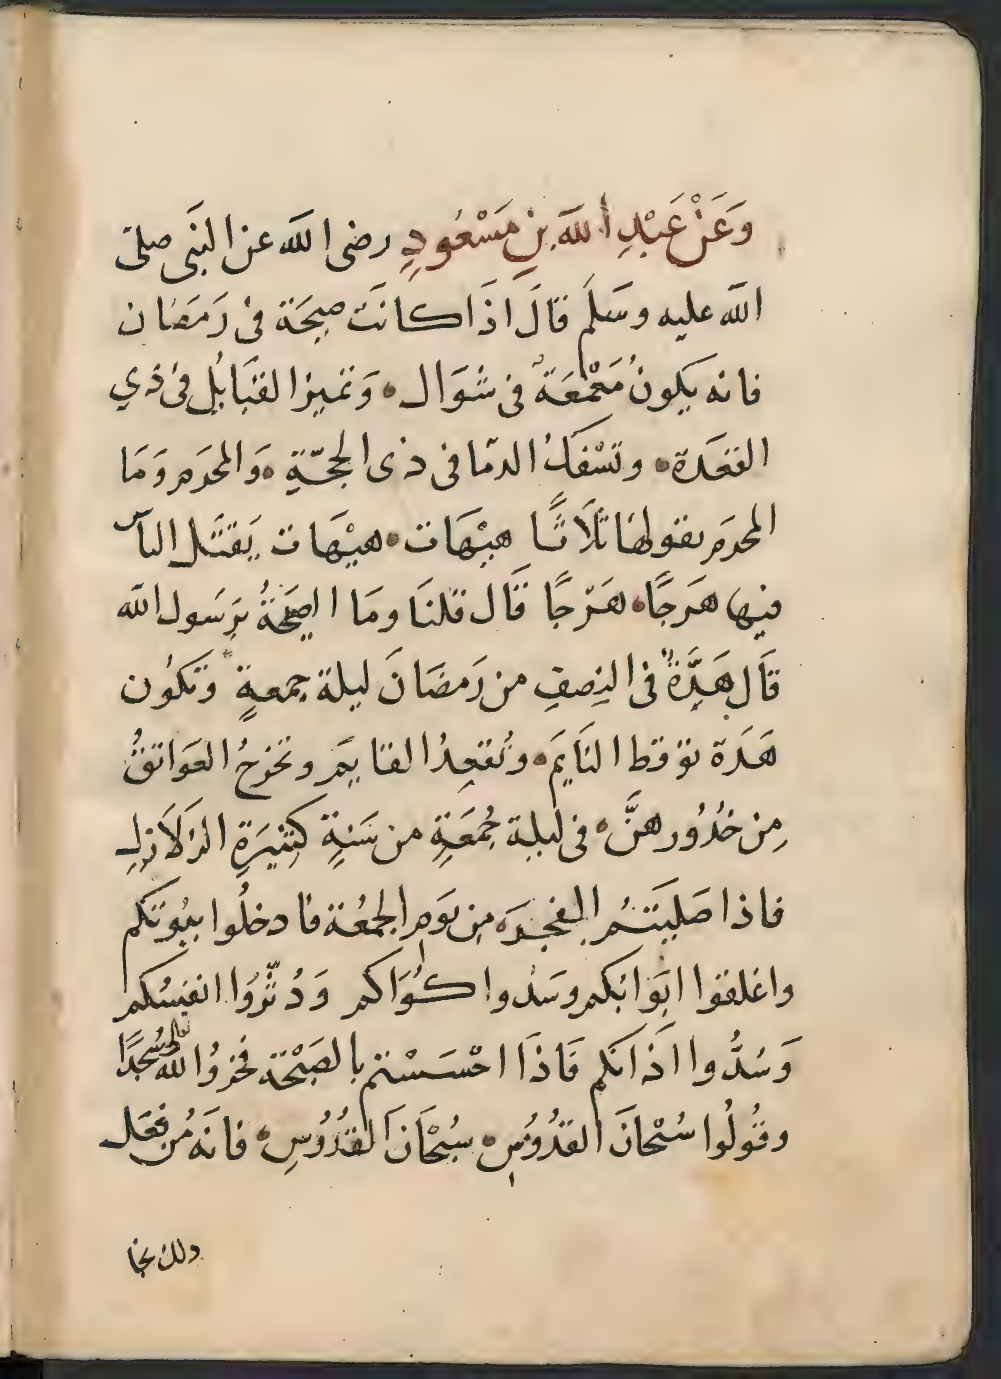 وَعَنْ عَبْدِ اللَّه بنِ مَسْعُودٍ رضى اللَّه عن النَبى صلى
اللَّه عليه وسَلم قالَ اذَا كانَت صيحَة فى رَمَضان
فانه يكونُ مَعْمَعَةٌ فى شوَال • وَتميز القبَايُل فى ذي
القعَدة • وتسْفكُ الدمَا فى ذى الحجّةِ • وَالمحرَم وَمَا
المحرَم يقولهَا ثلَاثًا هيْهَات • هيْهَات يَقتَل الناس
فيها هَرجًا • هَرْجًا قَال قلنَا ومَا الصيَحَةُ يرَسَول اللَّه
قَال هَدَّةٌ فى النِصفِ من رَمضَانَ ليلة جمعةٍ وَتكوُن
هَدَة توَقظ النَايَم • وتُقعِدُ القايِمَ وتخرَجُ العَواتقُ
مِن خدُورهنَّ • فى ليلة جُمَعَةٍ من سَنةٍ كثيَرةِ الزَلَازِلِ
فاذا صَليَتُم الفجرَ من يَوم الجمُعَة فادخلُوا بيُوتكم
واغلقوا ابَوابكم وسَدُوا كُوَاكم وَدُثّرُوا انفسُكم
وَسُدُّوا اذَانكم فَاذَا احْسَسْتم بالصَيْحَة فخرُوا للَّه تعالى سُجدًا
وقُولُوا سُبْحانَ القدُوُس • سبُحْانَ القدُوُسِ • فانَه مُن فعَل
ذلك نجا